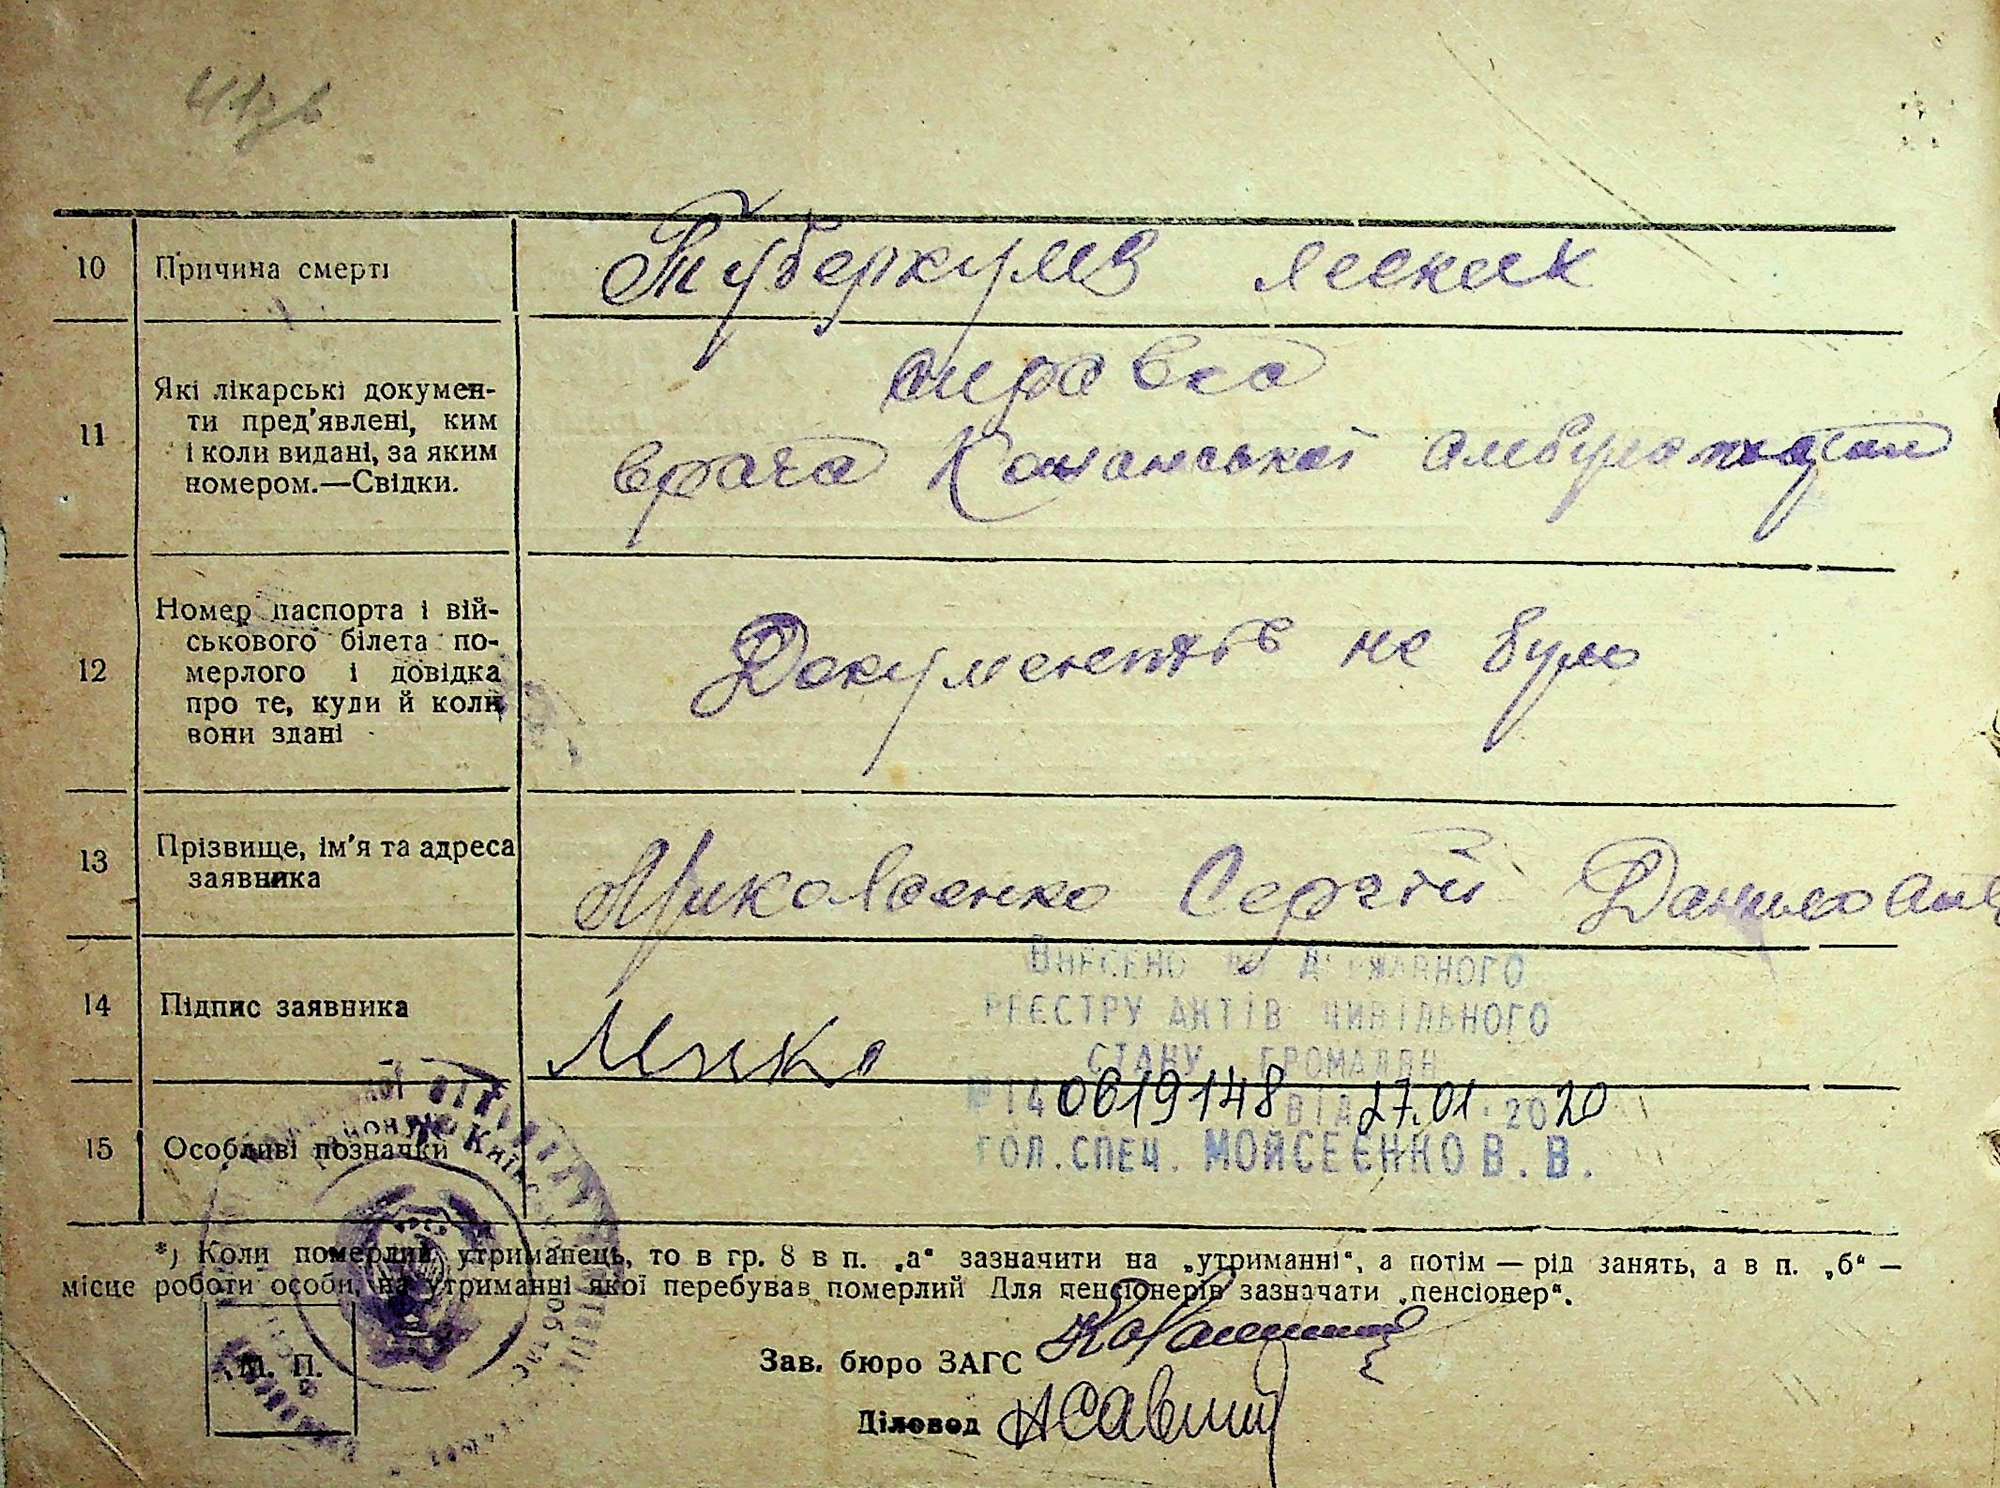 10 Причина смерті Туберкулз легких
11 Які лікарські докумен-
ти пред'явлені, ким
і коли видані, за яким
номером.—Свідки.
справка
врача амбулаторії
12 Номер паспорта і вій-
ськового білета по-
мерлого і довідка
про те, куди й коли
вони здані
Документів не було
13 Прізвище, ім'я та адреса
заявника
Миколаенко Сергій Данилович
Внесено до Державного
реєстру актів цивільного
стану громадян
№ 14 0619148 від 27.01.2020
гол.спец. Мойсеєнко В.В.
14 Підпис заявника Мико
15 Особливі позначки
*) Коли померлий утриманець, то в гр. 8 в п. „а“ зазначити на „утриманні“, а потім — рід занять, а в п. „б“ —
місце роботи особи, на утриманні якої перебував померлий Для пенсіонерів зазначати „пенсіонер“.
М. П.
Зав. бюро ЗАГС
Діловод